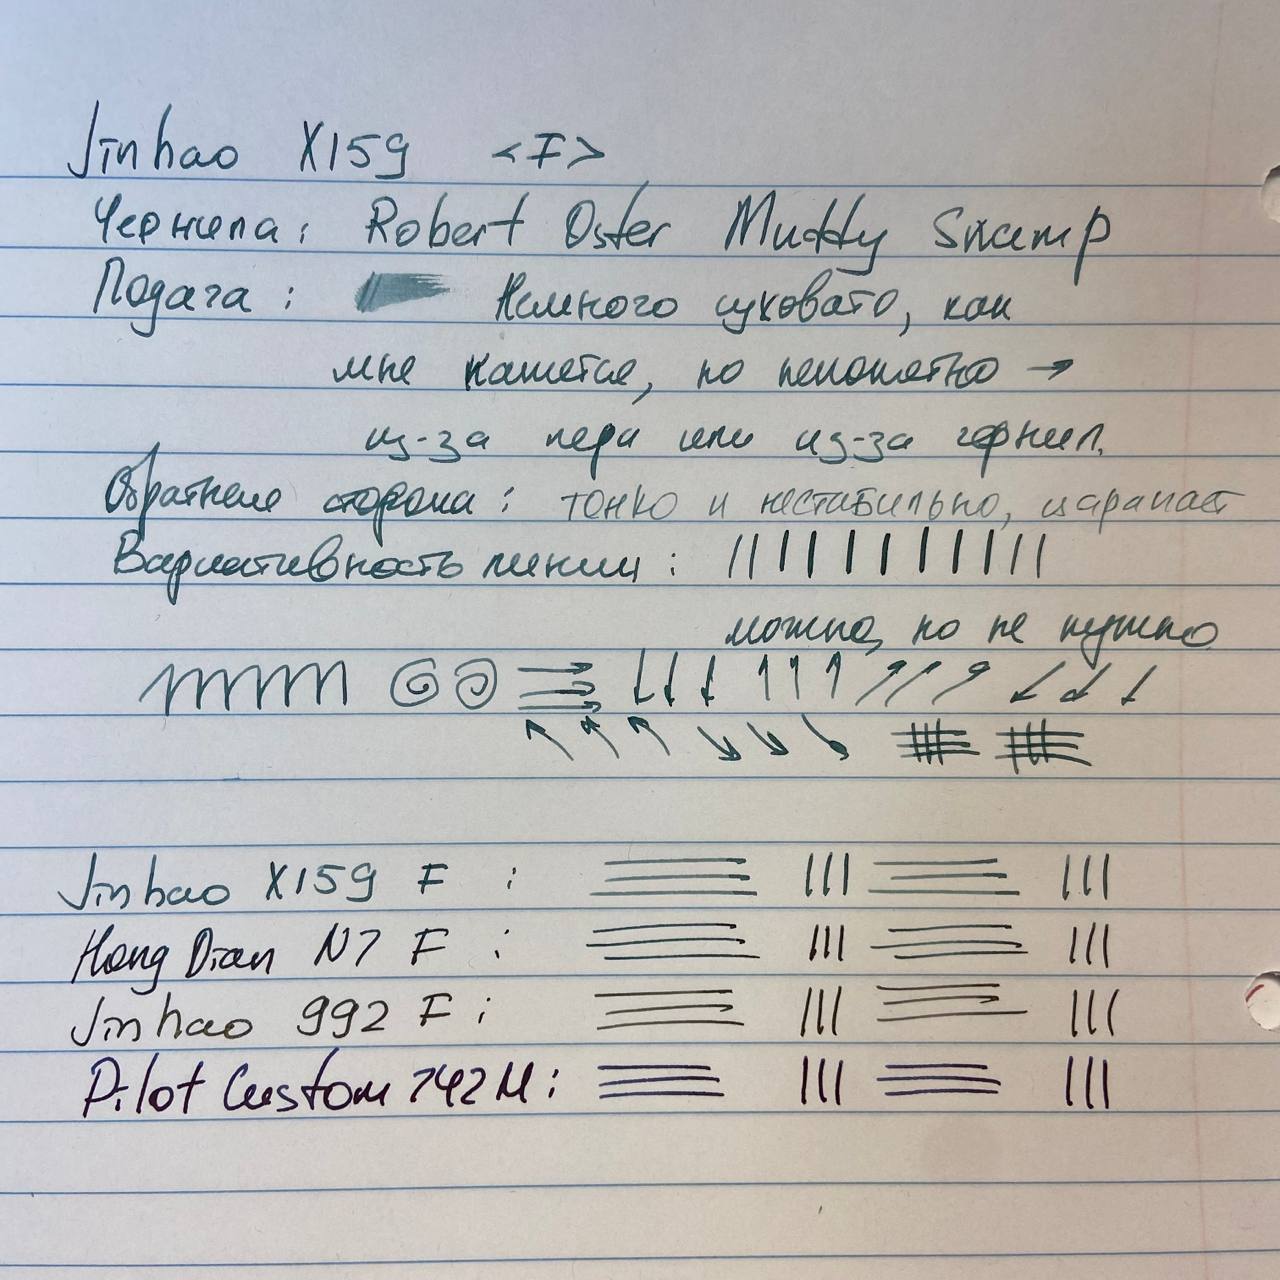 Jinhao X159 <F>
Чернила: Robert Oster Muddy Swamp
Подача: Немного суховато, как
мне кажется, но непонятно →
из-за пера или из-за чернил.
Обратная сторона: тонко и нестабильно, царапает
Вариативность линии:
можно, но не нужно
Jinhao X159 F :
Hong Dian N7 F :
Jinhao 992 F :
Pilot Custom 742 M :